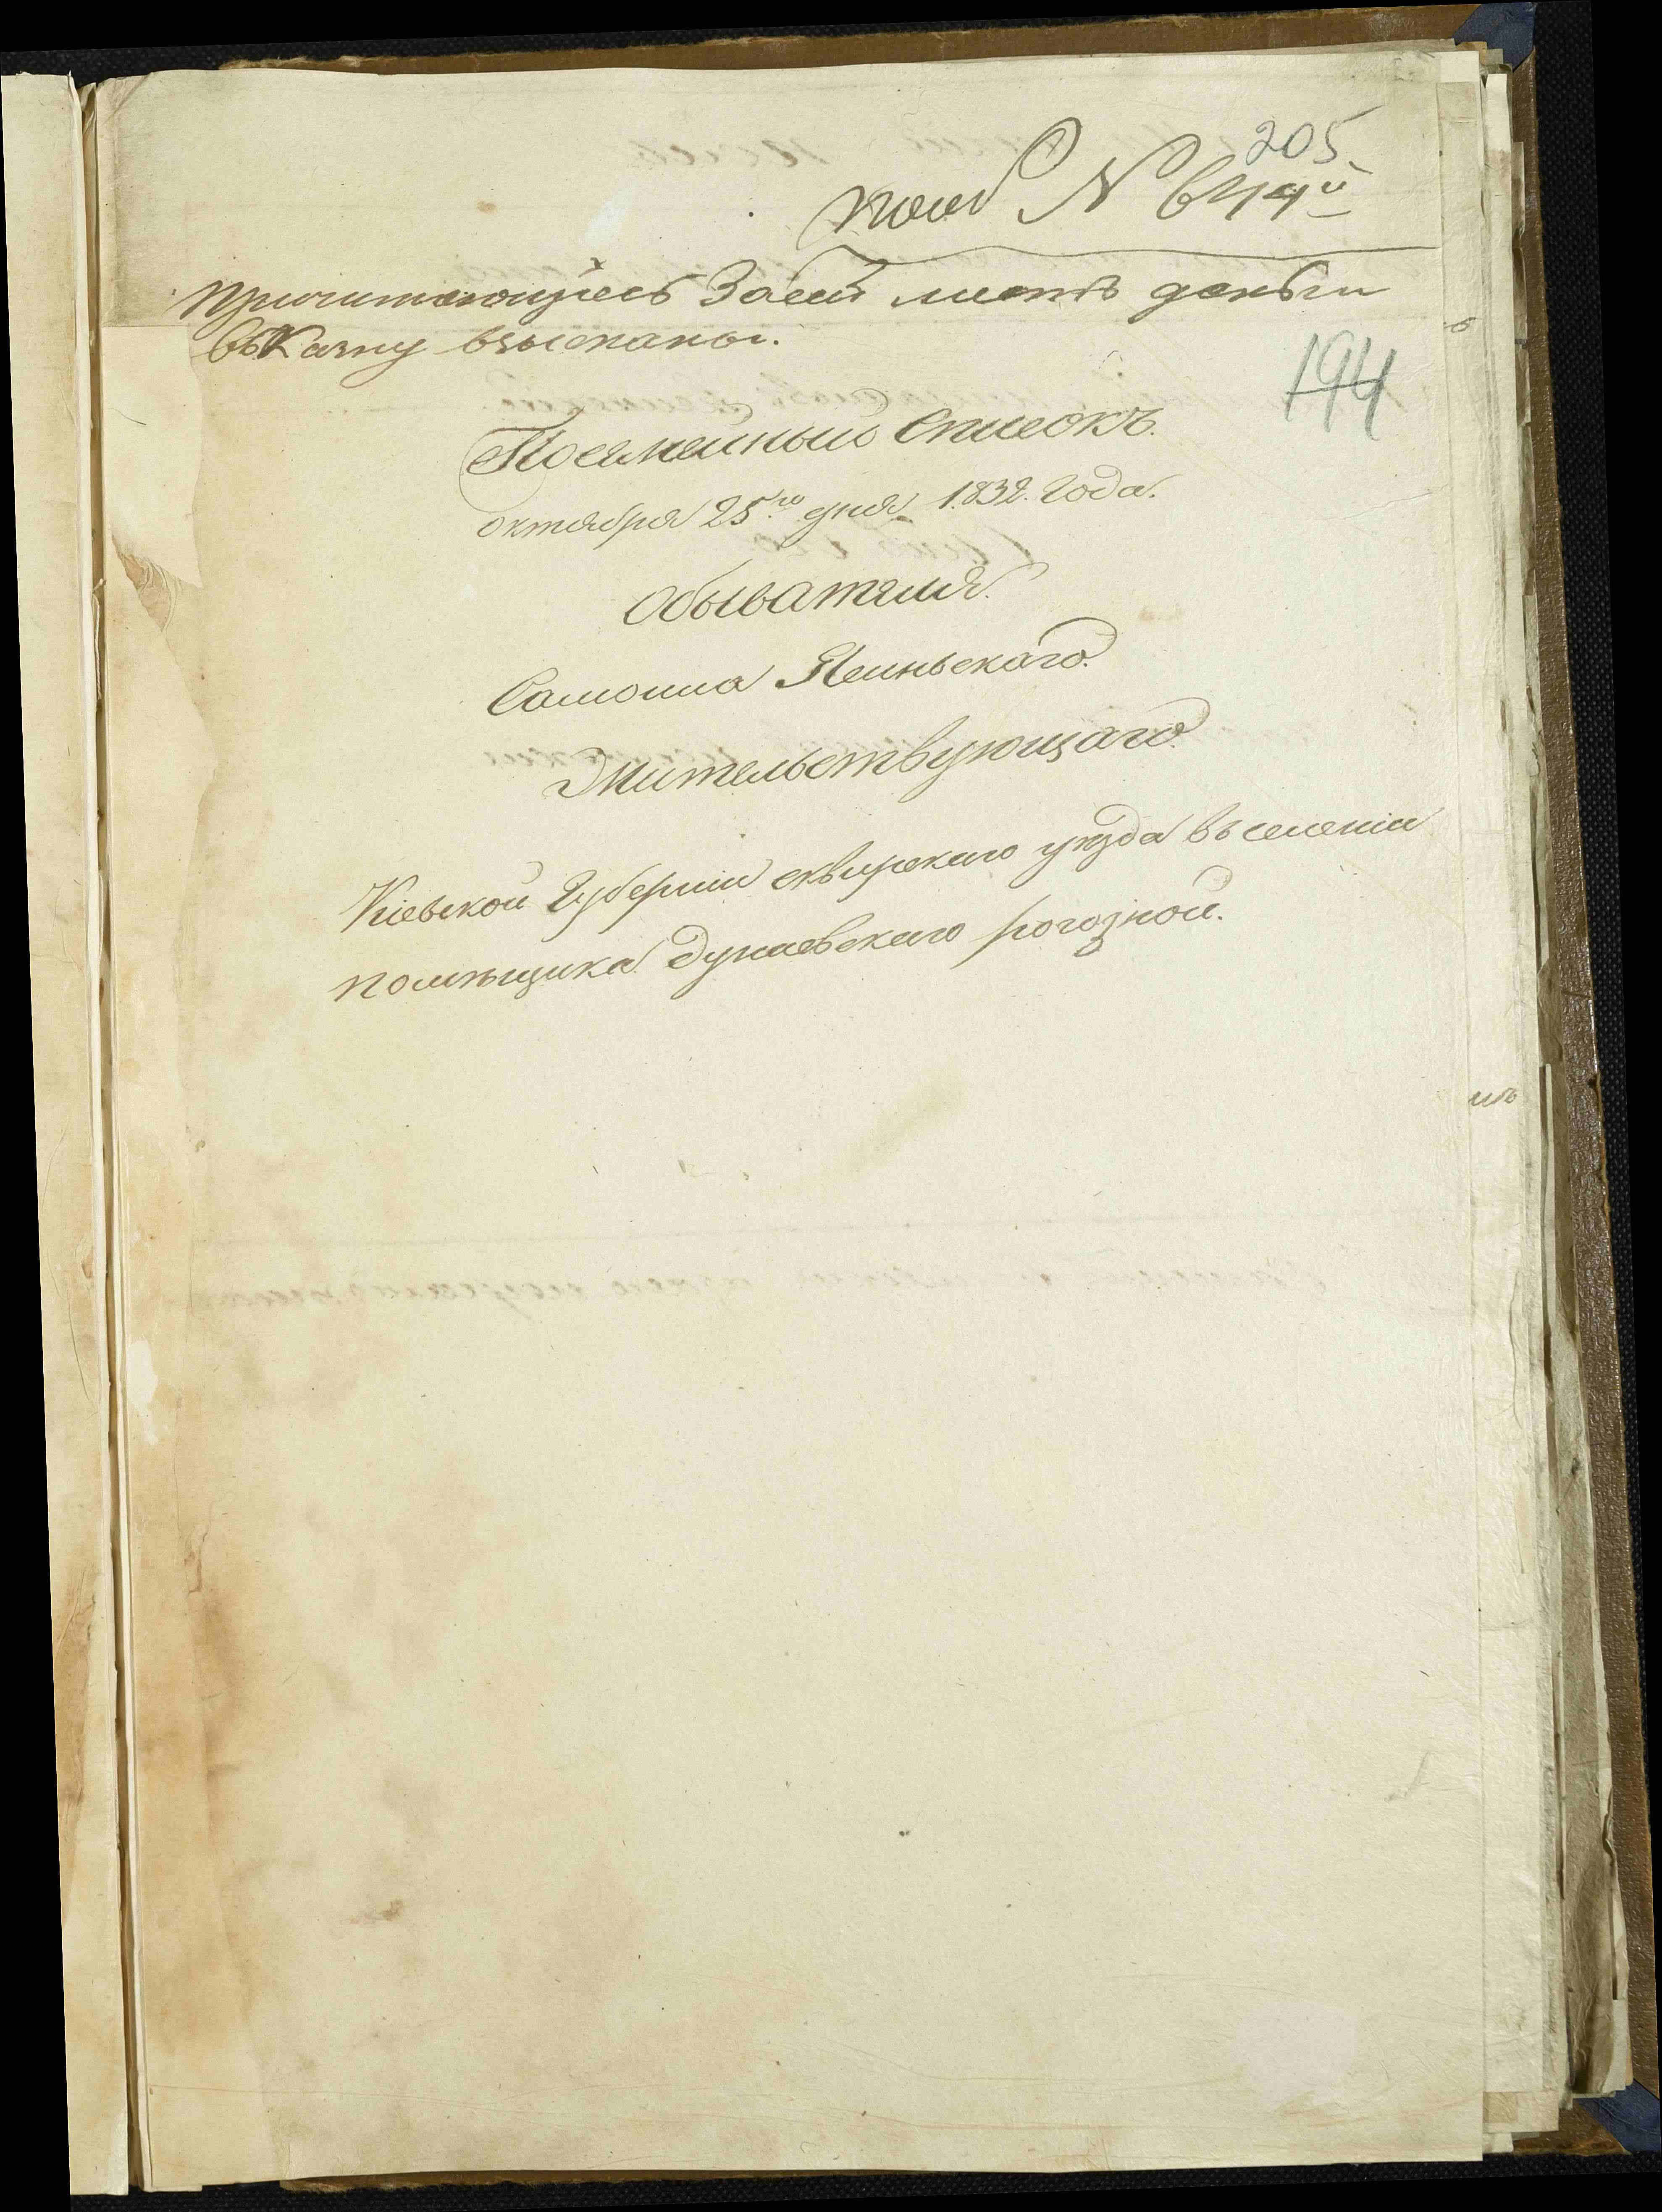 205
пол. №
причитающиесь За сей листъ деньги
въ Казну взысканы.
194
Посемейный Списокъ.
октября 25го дня 1832. года.
Обывателя
Самоила Ясиньскаго.
Жительствующаго
Кіевской Губерніи сквирскаго уезда въ селеніи
помѣщика Дунаевскаго рогозной.